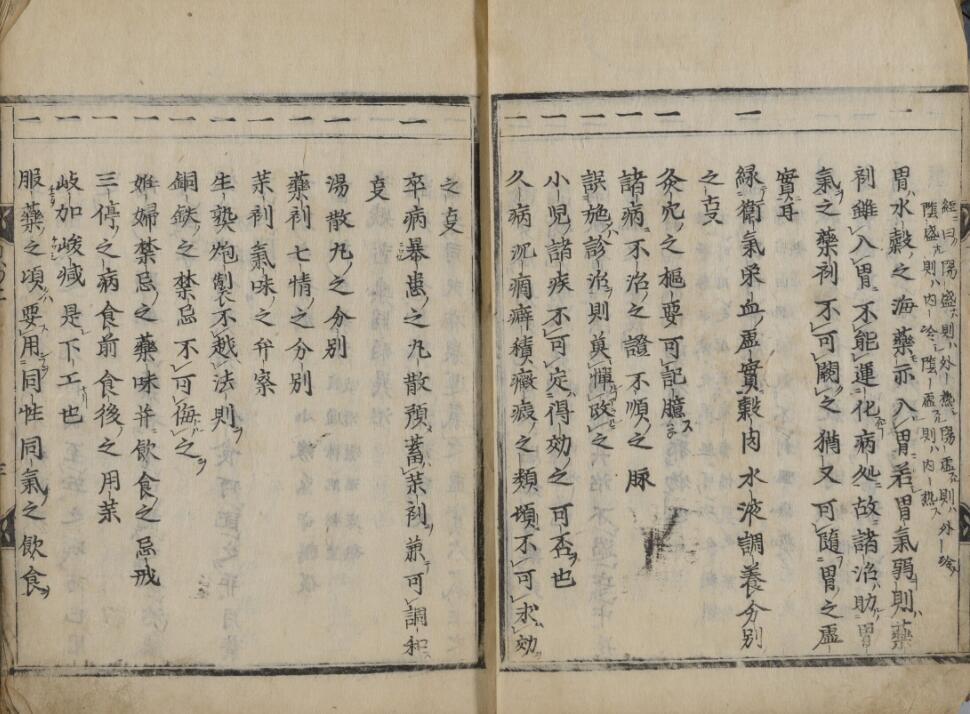 経曰陽盛則外熱陽虚則外冷
陰盛則内冷陰虚則内熱
一
胃水穀之海藥示入胃若胃氣弱則藥
剤雖入胃不能運化病処故諸治助胃
氣之藥剤不可闕之猶又可隨胃之虚
實耳
一
縁衛氣栄血虚實穀肉水液調養分別
之支
一 灸穴之枢要可記臆
一 諸病不治之證不順之脉
一 誤施診治則莫憚改之
一 小児諸疾不可定得効之可否也
一 久病沉痼癖積癥瘕之類頓不可求効
之支
一
卒病暴患之丸散預蓄薬剤兼可調和
支
一 湯散丸之分別
一 藥剤七情之分別
一 薬剤氣味之弁察
一 生熟炮製不越法則
一 銅鉄之禁忌不可侮之
一 姙婦禁忌之藥味并飲食之忌戒
一 三停之病食前食後之用薬
一 妓加峻减是下工也
一 服藥之頃要用同性同氣之飲食